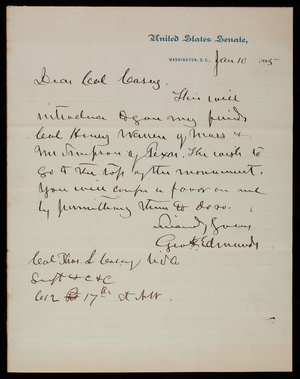 United States Senate,
WASHINGTON, D.C., Jan 10 1885
Dear Col Casey.
This will
introduce to you my friends
Col Henry Warren of Mass &
Mr Simpson of Texas. The wish to
go to the top of the monument.
You will confer a favor on me
by permitting them to do so.
Yours
Geo F Edmunds
Col Thos. L Casey, USA
Supt &c &c
612 17th St NW